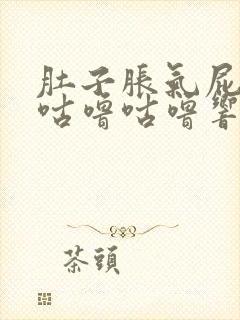 肚子脹氣屁
咕嚕咕嚕響
茶頭